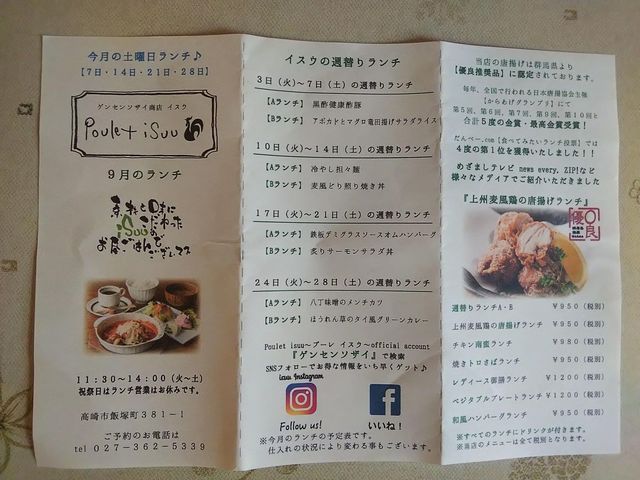 今月の土曜日ランチ♪
【7日・14日・21日・28日】
ゲンセンソザイ商店 イスウ
Poulet isuu
9月のランチ
素材と味に
こだわった
iSuuの
お昼ごはんで
ございマス
11:30～14:00（火～土）
祝祭日はランチ営業はお休みです。
高崎市飯塚町381－1
ご予約のお電話は
tel 027-362-5339
イスウの週替りランチ
3日（火）～7日（土）の週替りランチ
【Aランチ】 黒酢健康酢豚
【Bランチ】 アボカドとマグロ竜田揚げサラダライス
10日（火）～14日（土）の週替りランチ
【Aランチ】 冷やし担々麺
【Bランチ】 麦風どり照り焼き丼
17日（火）～21日（土）の週替りランチ
【Aランチ】 鉄板デミグラスソースオムハンバーグ
【Bランチ】 炙りサーモンサラダ丼
24日（火）～28日（土）の週替りランチ
【Aランチ】 八丁味噌のメンチカツ
【Bランチ】 ほうれん草のタイ風グリーンカレー
Poulet isuu～プーレ イスウ～official account
『ゲンセンソザイ』で検索
SNSフォローでお得な情報をいち早くゲット♪
isuu Instagram
Follow us!
いいね！
※今月のランチの予定表です。
仕入れの状況により変わる事もございます。
当店の唐揚げは群馬県より
【優良推奨品】に認定されております。
毎年、全国で行われる日本唐揚協会主催
【からあげグランプリ】にて
第5回、第6回、第7回、第9回、第10回と
合計5度の金賞・最高金賞受賞！
だんべー.com【食べてみたいランチ投票】では
4度の第1位を獲得いたしました！！
めざましテレビ news every. ZIP!など
様々なメディアでご紹介いただきました
『上州麦風鶏の唐揚げランチ』
優良
週替りランチA・B ￥950（税別）
上州麦風鶏の唐揚げランチ ￥950（税別）
チキン南蛮ランチ ￥980（税別）
焼きトロさばランチ ￥950（税別）
レディース御膳ランチ ￥1200（税別）
ベジタブルプレートランチ ￥1200（税別）
和風ハンバーグランチ ￥950（税別）
※すべてのランチにドリンクが付きます。
※当店のメニューは全て税別となります。